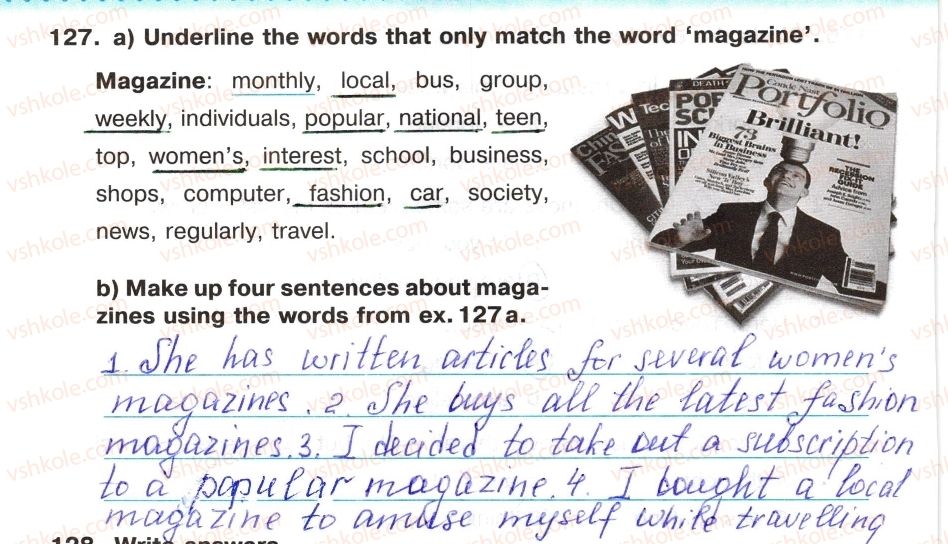 127. a) Underline the words that only match the word ‘magazine’.
Magazine: monthly, local, bus, group,
weekly, individuals, popular, national, teen,
top, women’s, interest, school, business,
shops, computer, fashion, car, society,
news, regularly, travel.
DEATH
Condé Nast
Portfolio
Brilliant!
73
Biggest Brains
in Business
b) Make up four sentences about maga-
zines using the words from ex. 127 a.
1. She has written articles for several women's
magazines. 2. She buys all the latest fashion
magazines. 3. I decided to take out a subscription
to a popular magazine. 4. I bought a local
magazine to amuse myself while travelling
128. Write answers
vshkole.com